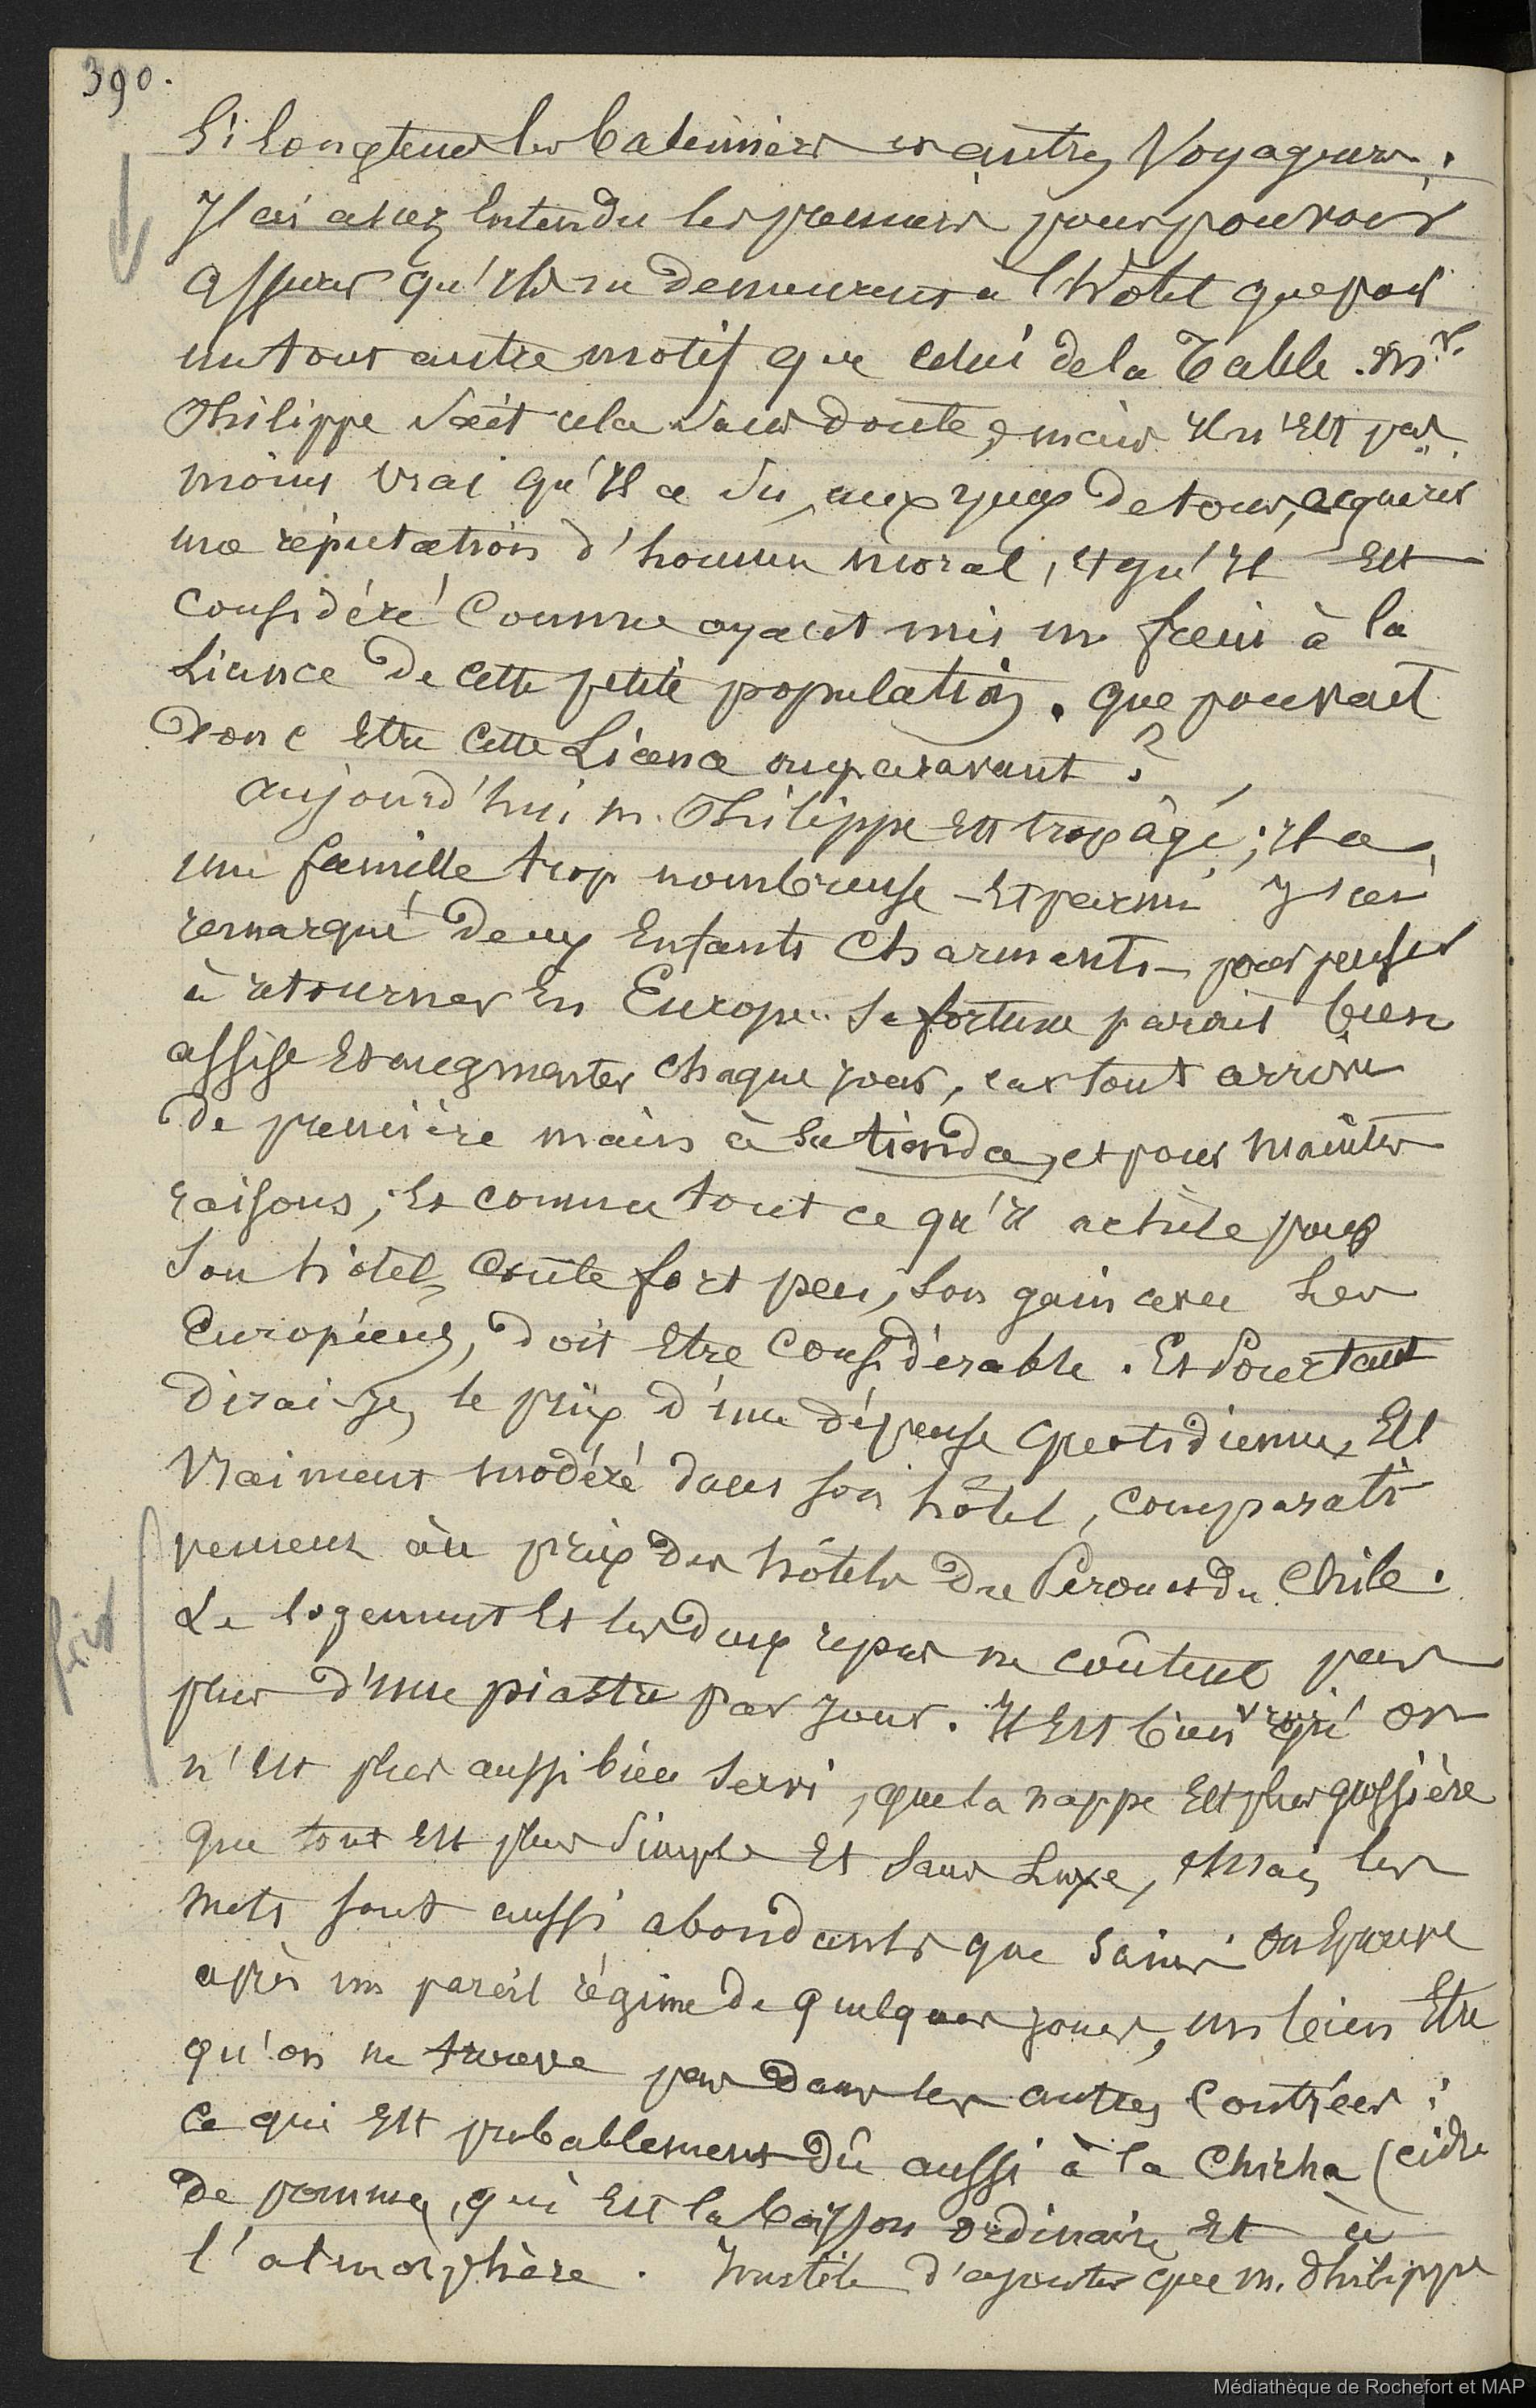 390.
Si longtems les baleiniers et autres Voyageurs.
J'ai assez Entendu les premiers pour pouvoir
assurer qu'ils ne demeurent à l'hôtel que par
un tout autre motif que celui de la Table. Mr.
Philippe sait cela sans doute, mais il n'Est pas
moins vrai qu'il a su, aux yeux de tous, acquérir
une réputation d'homme moral, et qu'il Est
considéré Comme ayant mis un frein à la
Licence de cette petite population. que pouvait
donc Etre cette Licence auparavant ?
aujourd'hui m. Philippe Est trop âgé ; il a
une famille trop nombreuse - Et parmi J'ai
remarqué deux Enfants Charmants - pour penser
à retourner En Europe. Sa fortune parait bien
assise Et augmenter chaque jour, car tout arrive
de première main à sa tienda, et pour maintes
raisons ; Et comme tout ce qu'il achète pour
Son hôtel, coûte fort peu, Son gain avec les
Européens, doit Etre Considérable. Et Pourtant
dirai-je, le prix d'une dépense quotidienne, Est
Vraiment modéré dans son hôtel, comparati
vement au prix des hôtels du Pérou et du Chile.
Le logement Et les deux repas ne coûtent pas
plus d'une piastre par jour. Il Est bien vrai qu'on
n'Est plus aussi bien servi, que la nappe Est plus grossière
que tout Est plus Simple Et Sans Luxe, Mais les
mets sont aussi abondants que sains. On Eprouve
après un pareil régime de quelques jours, un bien Etre
qu'on ne trouve pas dans les autres Contrées :
Ce qui Est probablement dû aussi à la Chicha (cidre
de pomme, qui Est la boisson ordinaire Et à
l'atmosphère. Inutile d'ajouter que m. Philippe
prix
Médiathèque de Rochefort et MAP